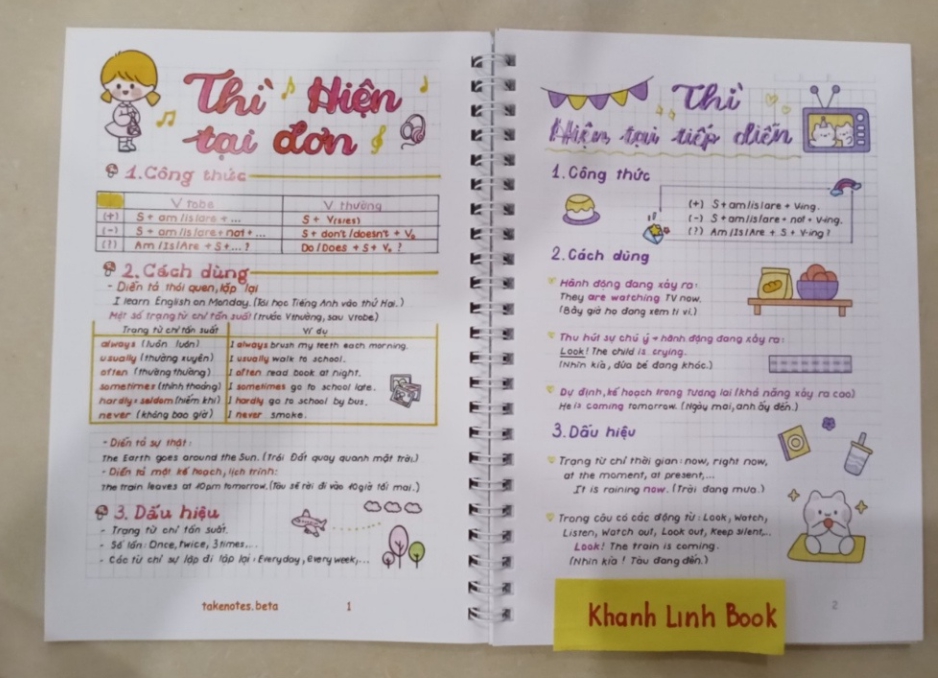 Thì Hiện
tại đơn
1. Công thức
V tobe V thường
(+) S + am/is/are + ... S + V(s/es)
(-) S + am/is/are + not + ... S + don't/doesn't + V₀
(?) Am/Is/Are + S + ...? Do/Does + S + V₀?
2. Cách dùng
- Diễn tả thói quen, lặp lại
I learn English on Monday. (Tôi học Tiếng Anh vào thứ Hai.)
Một số trạng từ chỉ tần suất (trước Vthường, sau Vtobe)
Trạng từ chỉ tần suất Ví dụ
always (luôn luôn) I always brush my teeth each morning.
usually (thường xuyên) I usually walk to school.
often (thường thường) I often read book at night.
sometimes (thỉnh thoảng) I sometimes go to school late.
hardly = seldom (hiếm khi) I hardly go to school by bus.
never (không bao giờ) I never smoke.
- Diễn tả sự thật:
The Earth goes around the Sun. (Trái Đất quay quanh mặt trời)
- Diễn tả một kế hoạch, lịch trình:
the train leaves at 10pm tomorrow. (Tàu sẽ rời đi vào 10giờ tối mai.)
3. Dấu hiệu
- Trạng từ chỉ tần suất.
- Số lần: Once, twice, 3 times....
- Các từ chỉ sự lặp đi lặp lại: Everyday, Every week,...
takenotes.beta 1
Thì
Hiện tại tiếp diễn
1. Công thức
(+) S + am/is/are + Ving.
(-) S + am/is/are + not + V-ing.
(?) Am/Is/Are + S + V-ing?
2. Cách dùng
Hành động đang xảy ra:
They are watching TV now.
(Bây giờ họ đang xem ti vi.)
Thu hút sự chú ý → hành động đang xảy ra:
Look! The child is crying.
(Nhìn kìa, đứa bé đang khóc.)
Dự định, kế hoạch trong tương lai (khả năng xảy ra cao)
He is coming tomorrow. (Ngày mai, anh ấy đến.)
3. Dấu hiệu
Trạng từ chỉ thời gian: now, right now,
at the moment, at present,...
It is raining now. (Trời đang mưa.)
Trong câu có các động từ: Look, Watch,
Listen, Watch out, Look out, Keep silent,...
Look! The train is coming.
(Nhìn kìa! Tàu đang đến.)
Khanh Linh Book
2